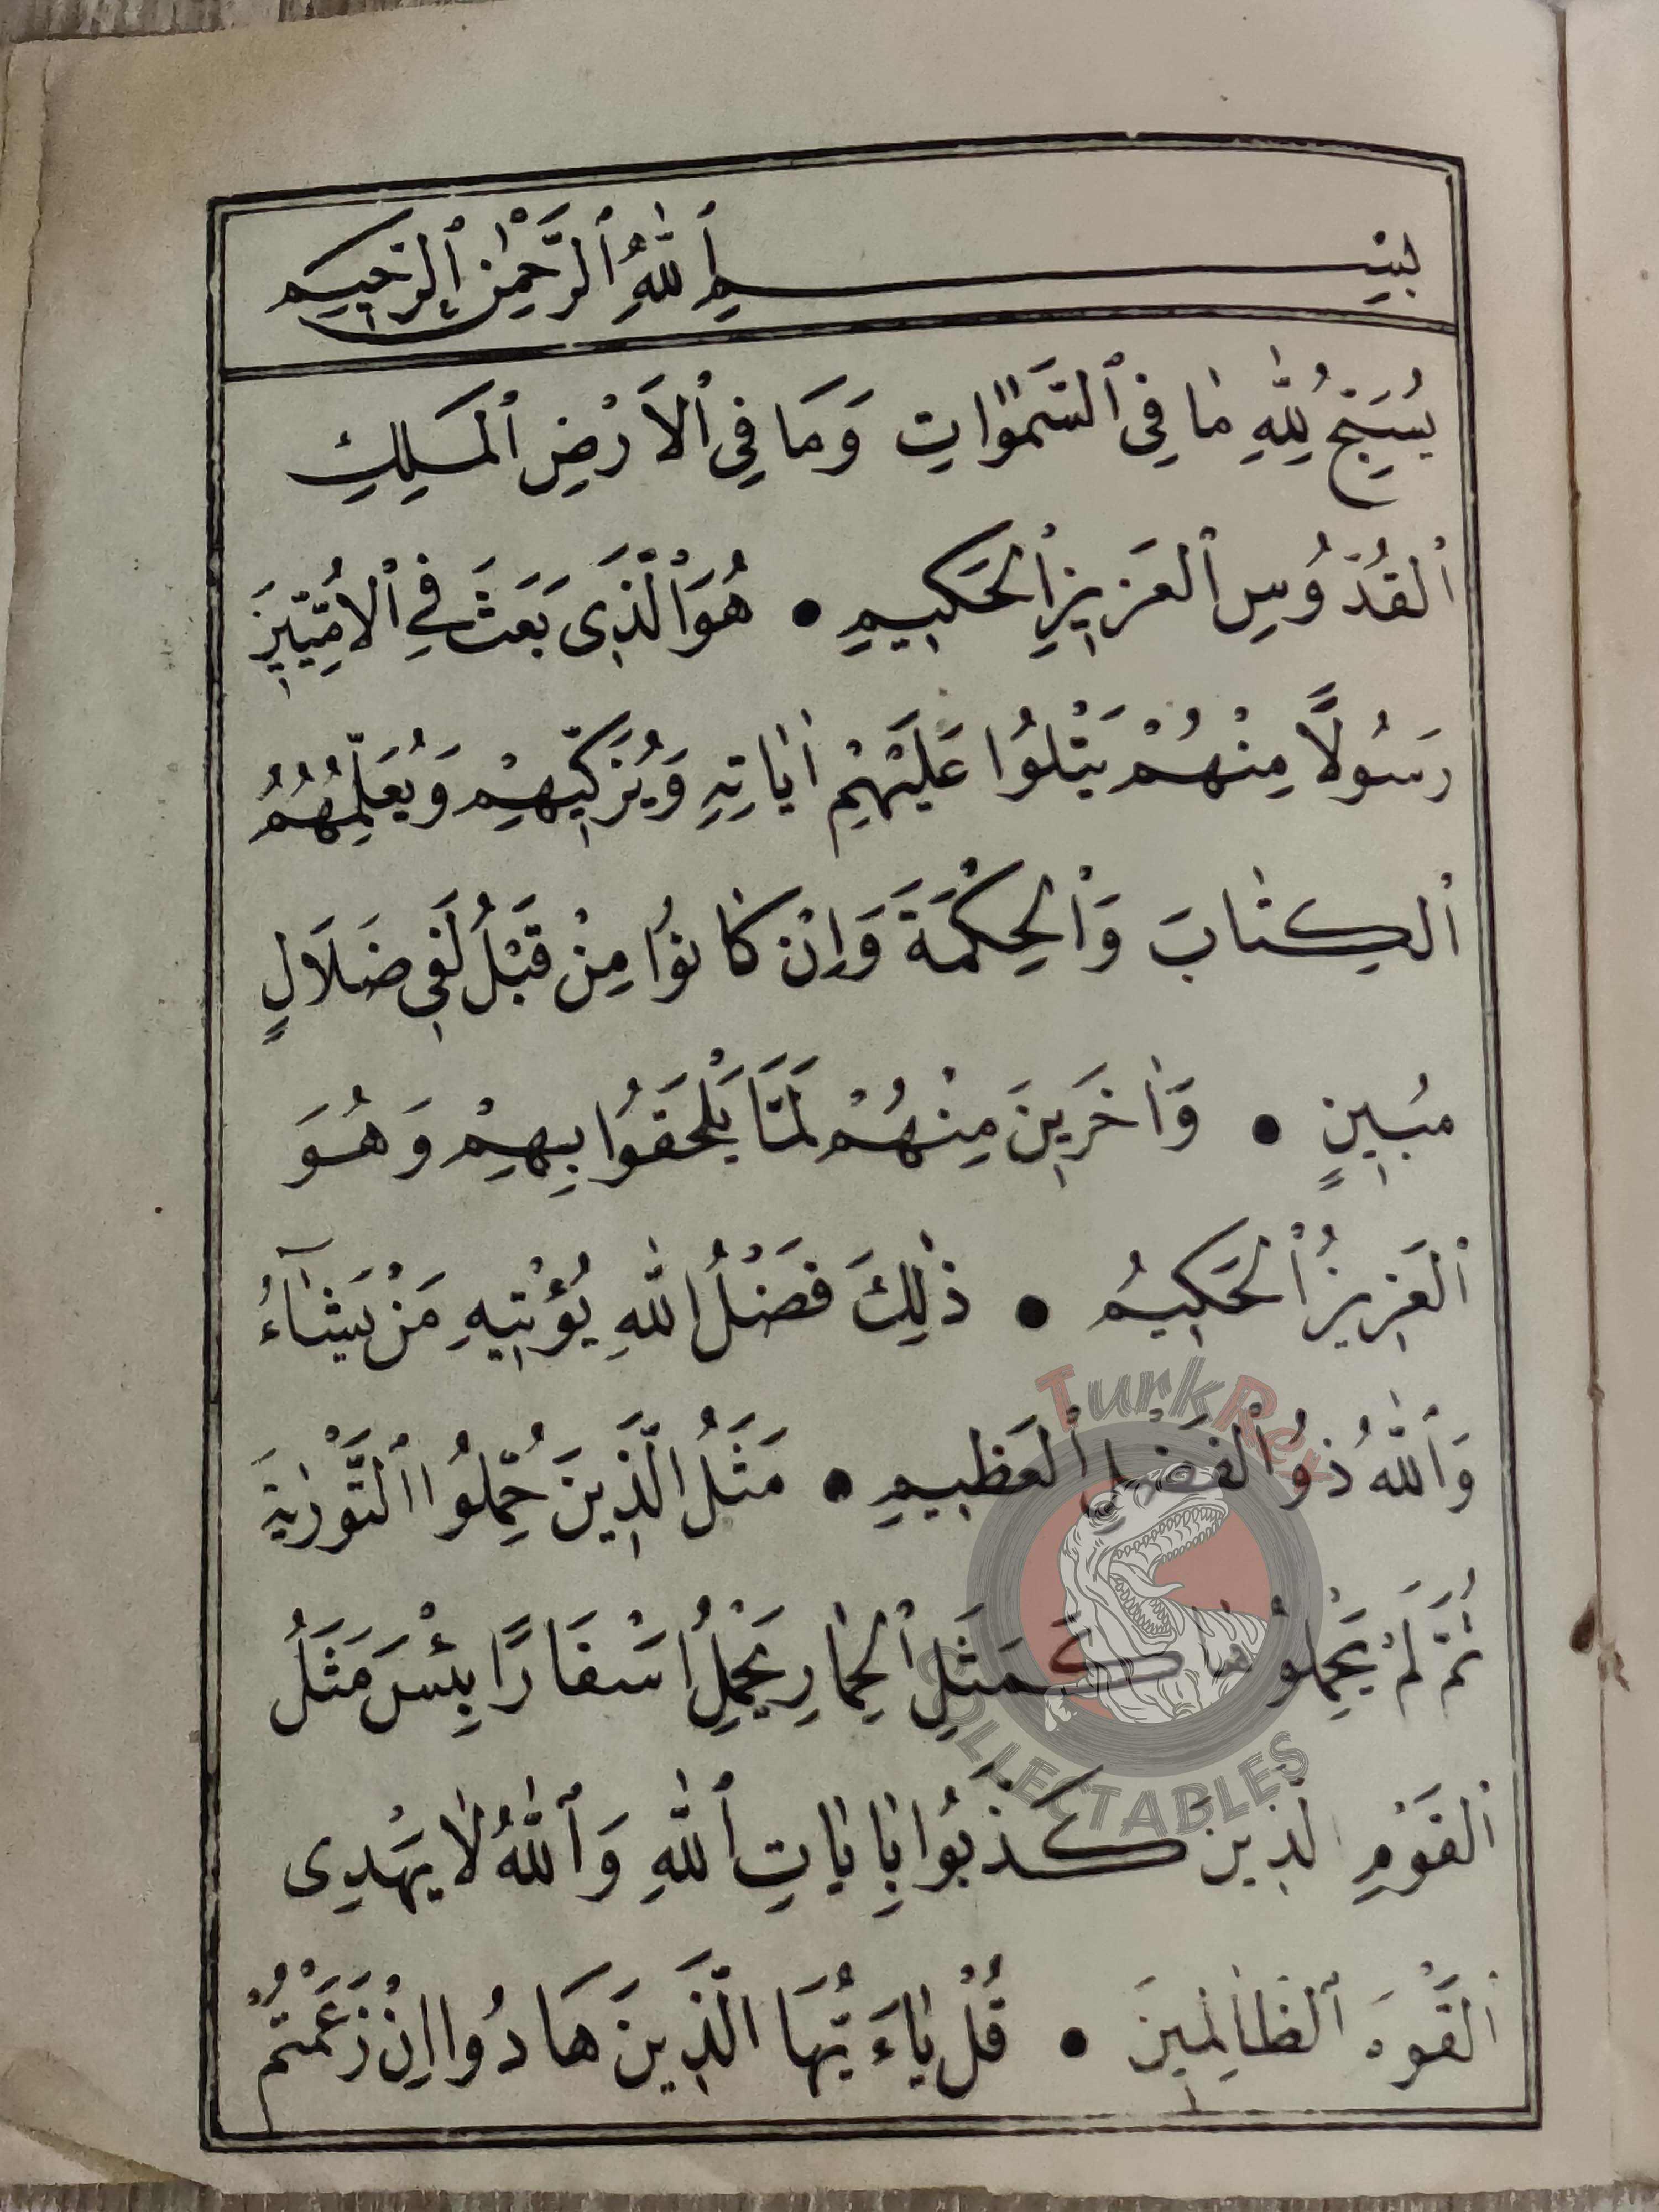 بِسْمِ ٱللّٰهِ ٱلرَّحْمٰنِ ٱلرَّحِيمِ
يُسَبِّحُ لِلّٰهِ مٰا فِى ٱلسَّمٰوٰاتِ وَمَا فِى ٱلْاَرْضِ ٱلْمَلِكِ
ٱلْقُدُّوسِ ٱلْعَزِيزِ ٱلْحَكِيمِ • هُوَ ٱلَّذِى بَعَثَ فِى ٱلْاُمِّيِّينَ
رَسُولًا مِنْهُمْ يَتْلُوا عَلَيْهِمْ اٰيٰاتِهِ وَيُزَكِّيهِمْ وَيُعَلِّمُهُمُ
ٱلْكِتٰابَ وَٱلْحِكْمَةَ وَاِنْ كٰانُوا مِنْ قَبْلُ لَفِى ضَلَالٍ
مُبِينٍ • وَاٰخَرِينَ مِنْهُمْ لَمَّا يَلْحَقُوا بِهِمْ وَهُوَ
ٱلْعَزِيزُ ٱلْحَكِيمُ • ذٰلِكَ فَضْلُ اللّٰهِ يُؤْتِيهِ مَنْ يَشٰٓاءُ
وَٱللّٰهُ ذُو ٱلْفَضْلِ ٱلْعَظِيمِ • مَثَلُ الَّذِينَ حُمِّلُوا ٱلتَّوْرٰيةَ
ثُمَّ لَمْ يَحْمِلُوهٰا كَمَثَلِ ٱلْحِمٰارِ يَحْمِلُ اَسْفَارًا بِئْسَ مَثَلُ
ٱلْقَوْمِ الَّذِينَ كَذَّبُوا بِاٰيٰاتِ ٱللّٰهِ وَٱللّٰهُ لٰا يَهْدِى
ٱلْقَوْمَ ٱلظّٰالِمِينَ • قُلْ يٰاءَيُّهَا الَّذِينَ هَادُوا اِنْ زَعَمْتُمْ
TurkRex
COLLECTABLES